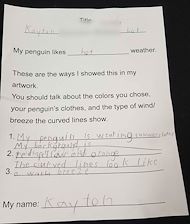 Title
hot
My penguin likes hot weather.
These are the ways I showed this in my
artwork.
You should talk about the colors you chose,
your penguin's clothes, and the type of wind/
breeze the curved lines show.
1. My penguin is wering
My background is
2. and orange
The curved lines look like
3. a warm
My name: Kayton